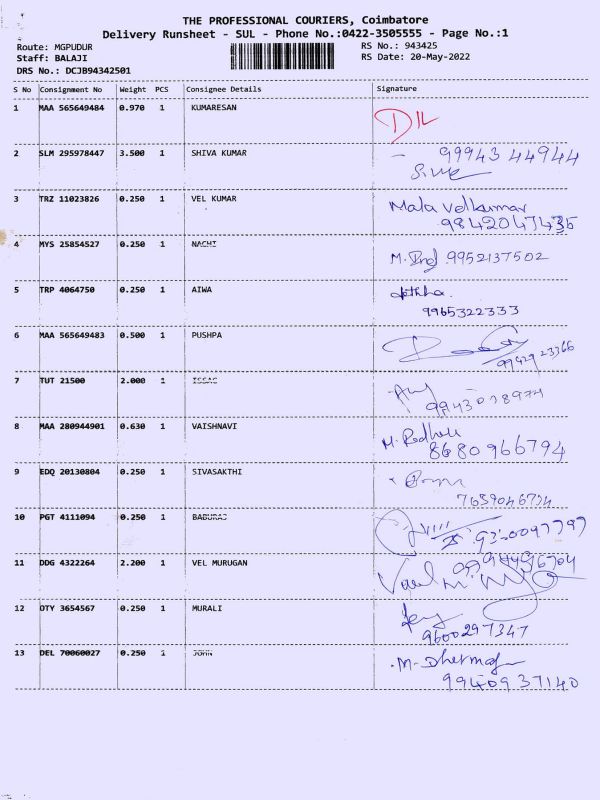 THE PROFESSIONAL COURIERS, Coimbatore
Delivery Runsheet - SUL - Phone No.:0422-3505555 - Page No.:1
Route: MGPUDUR
RS No.: 943425
Staff: BALAJI
RS Date: 20-May-2022
DRS No.: DCJB94342501
S No Consignment No Weight PCS Consignee Details Signature
1 MAA 565649484 0.970 1 KUMARESAN
2 SLM 295978447 3.500 1 SHIVA KUMAR
99943 44944
3 TRZ 11023826 0.250 1 VEL KUMAR
Mala velkumar
9842047435
4 MYS 25854527 0.250 1 NACHI
9952137502
5 TRP 4064750 0.250 1 AIWA
9965322333
6 MAA 565649483 0.500 1 PUSHPA
7 TUT 21500 2.000 1 ISSAC
8 MAA 280944901 0.630 1 VAISHNAVI
8680966794
9 EDQ 20130804 0.250 1 SIVASAKTHI
10 PGT 4111094 0.250 1 BABURAJ
11 DDG 4322264 2.200 1 VEL MURUGAN
12 OTY 3654567 0.250 1 MURALI
9600297347
13 DEL 70060027 0.250 1 JOHN
9940937140